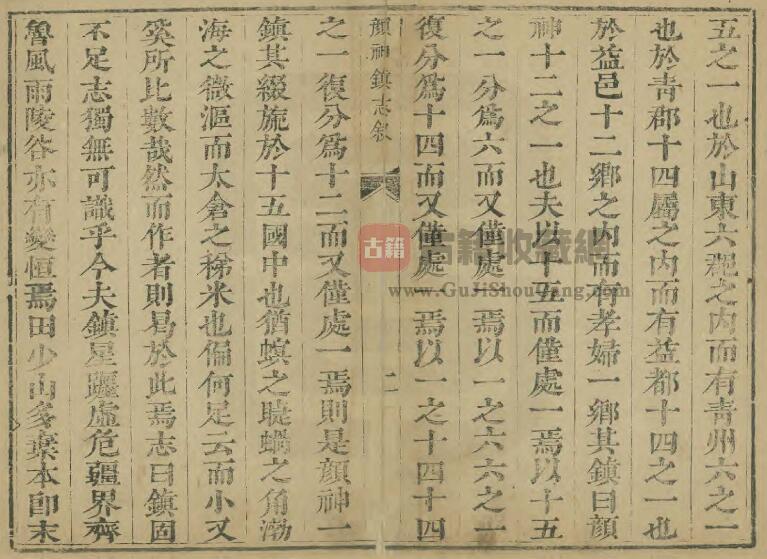 五之一也於山東六郡之內而有靑州六之一
也於靑郡十四屬之內而有益都十四之一也
於益邑十二鄕之內而有孝婦一鄕其鎮曰顏
神十二之一也夫以十五而僅處一焉以十五
之一分爲六而又僅處一焉以一之六六之一
復分爲十四而又僅處一焉以一之十四十四
顏神鎮志敘
二
之一復分爲十二而又僅處一焉則是顏神一
鎮其綴旒於十五國中也猶螟之睫蝸之角渤
海之微漚而太倉之稊米也偏何足云而小又
奚所比數哉然而作者則曷於此焉志曰鎮固
不足志獨無可識乎今夫鎮星躔虛危疆界齊
魯風雨陵谷亦有變恒焉田少山多棄本卽末
古籍
古籍收藏網
www.GuJiShouCang.com